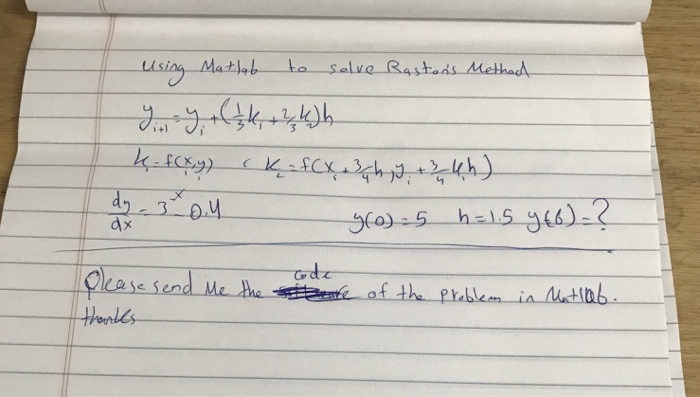 Using Matlab to solve Raston's Method
y_{i+1} = y_i + (1/3 k_1 + 2/3 k_2)h
k_1 = f(x_i, y_i) ( k_2 = f(x_i + 3/4 h, y_i + 3/4 k_1 h)
dy/dx = 3^{-x} - 0.4 y(0) = 5 h = 1.5 y(6) = ?
please send me the code of the problem in Matlab.
thanks